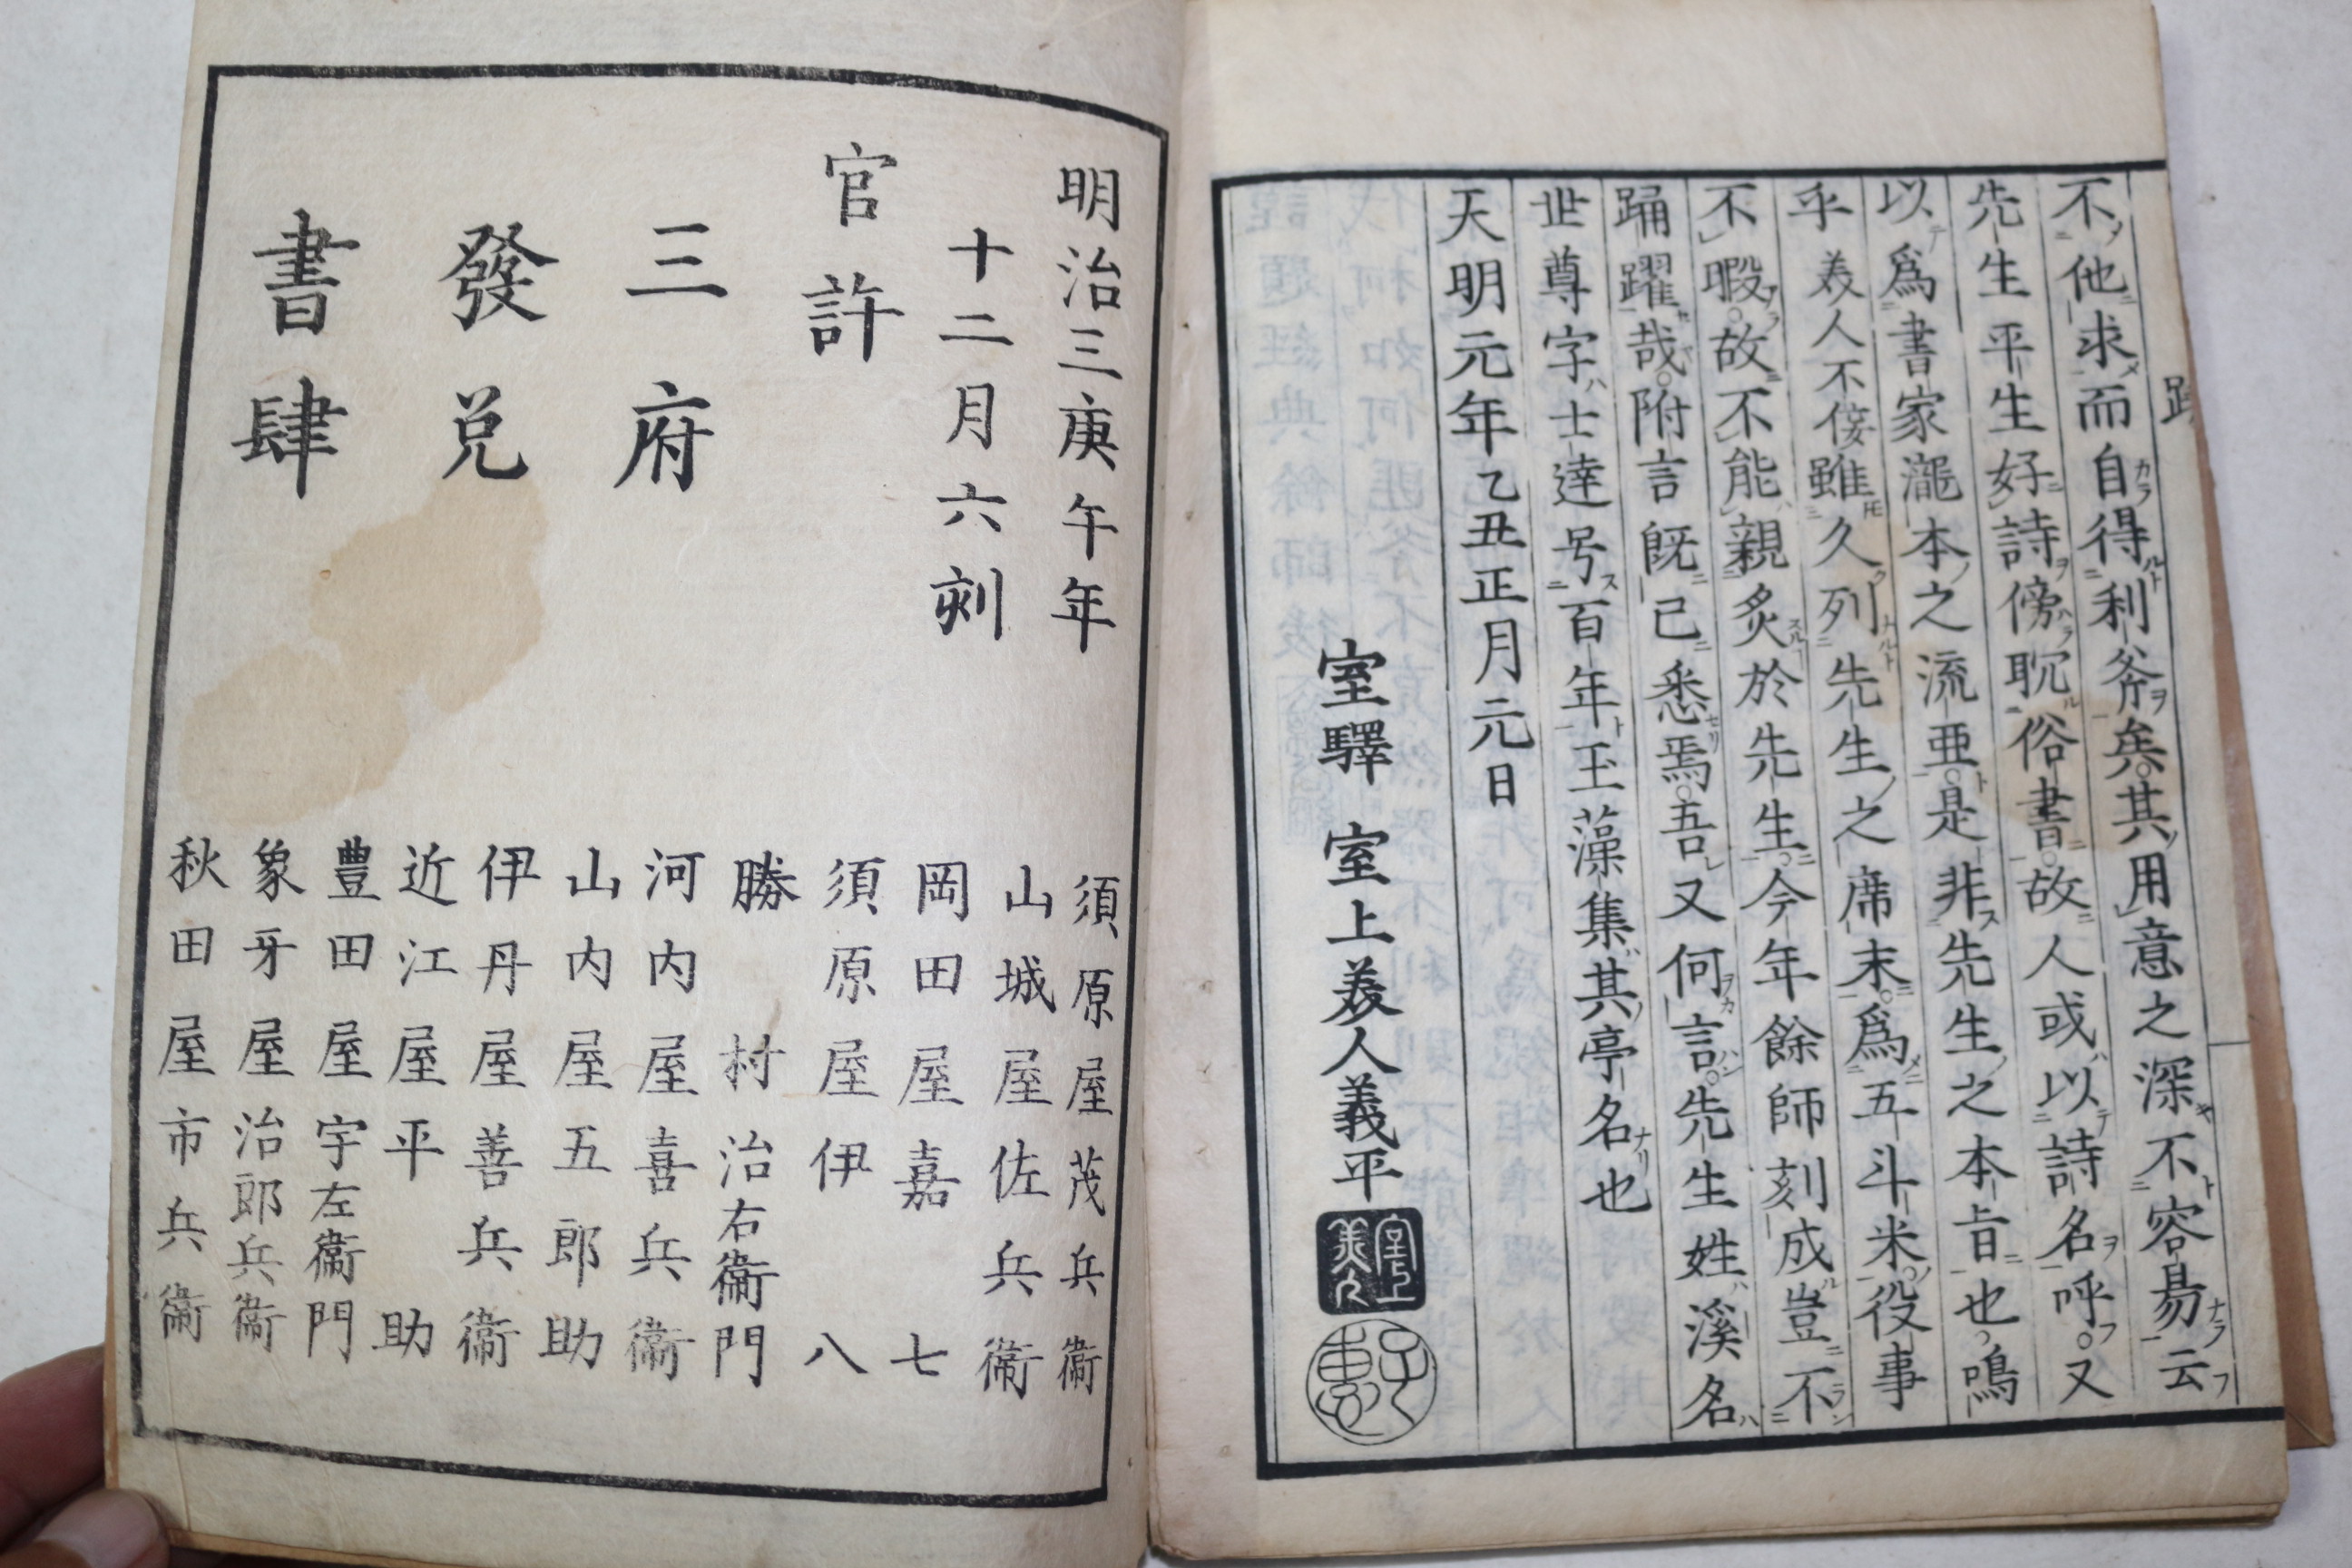 不他求而自得利斧矣其用意之深不容易云
先生平生好詩傍耽俗書故人或以詩名呼又
以爲書家瀧本之流亜是非先生之本旨也鳴
乎美人不佞雖久列先生之席末爲五斗米役事
不暇故不能親炙於先生今年餘師刻成豈不
踊躍哉附言既已悉焉吾又何言先生姓溪名
世尊字士達号百年玉藻集其亭名也
天明元年乙丑正月元日
室驛 室上美人義平
明治三庚午年
十二月六刻
官許
三府
發兌
書肆
須原屋茂兵衞
山城屋佐兵衞
岡田屋嘉七
須原屋伊八
勝村治右衞門
河内屋喜兵衞
山内屋五郎助
伊丹屋善兵衞
近江屋平助
豊田屋宇左衞門
象牙屋治郎兵衞
秋田屋市兵衞